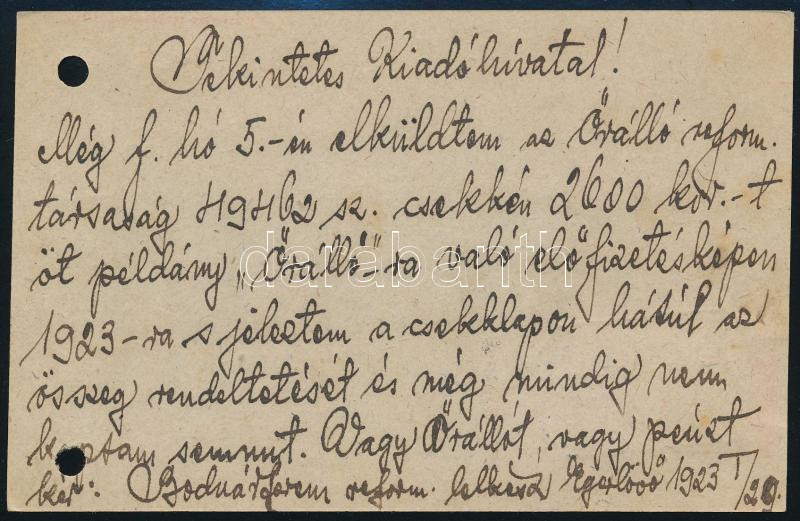 Tekintetes Kiadóhivatal!
Még f. hó 5.-én elküldtem az Őrálló reform.
társaság 49462 sz. csekkén 2600 kor.-t
öt példány „Őrálló"-ra való előfizetésképen
1923-ra s jeleztem a csekklapon hátúl az
összeg rendeltetését és még mindig nem
kaptam semmit. Vagy Őrállót, vagy pénzt
kér: Bodnár Ferenc reform. lelkész Egerlövő 1923 I/29.
darabanth